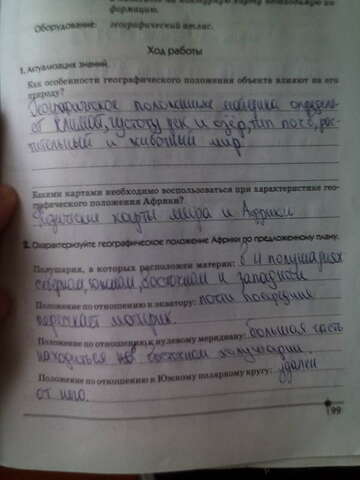 формацию.
Оборудование: географический атлас.
Ход работы
1. Актуализация знаний.
Как особенности географического положения объекта влияют на его
природу?
Географическое положение материка определя-
ет климат, густоту рек и озёр, тип почв, рас-
тительный и животный мир
Какими картами необходимо воспользоваться при характеристике гео-
графического положения Африки?
Физические карты мира и Африки
2. Охарактеризуйте географическое положение Африки по предложенному плану.
Полушария, в которых расположен материк: В 4 полушариях
северном, южном, восточном и западном
Положение по отношению к экватору: почти посередине
пересекает материк.
Положение по отношению к нулевому меридиану: большая часть
находиться на восточном полушарии.
Положение по отношению к Южному полярному кругу: удален
от него.
99